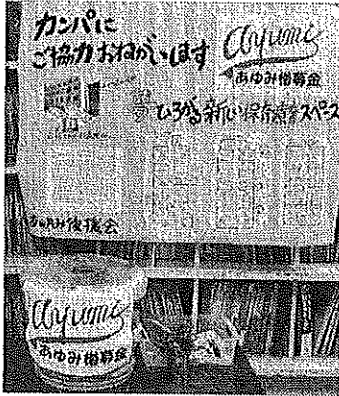 カンパに
ご協力おねがいします
ayumi
あゆみ樹募金
夢ひろがる新しい保育スペース
あゆみ後援会
ayumi
あゆみ樹募金